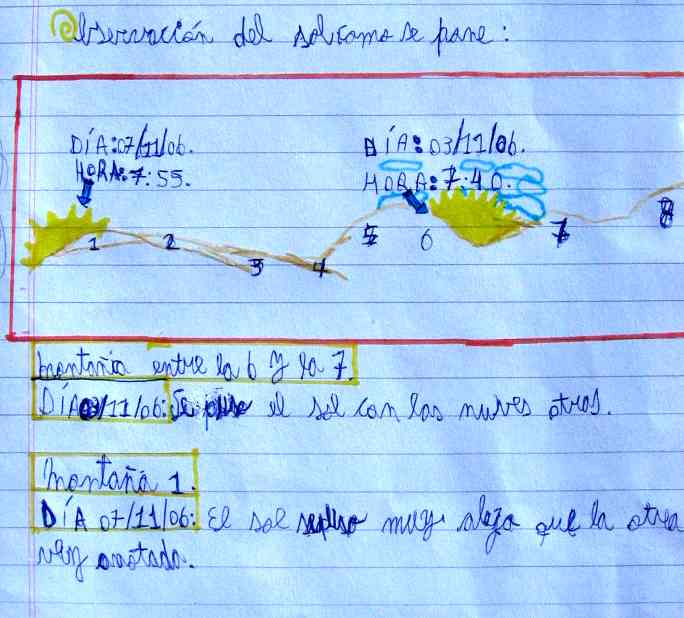 Observación del sol como se pone:
DÍA:07/11/06. DÍA:03/11/06.
HORA:7:55. HORA:7:40.
1 2 3 4 5 6 7 8
montaña entre la 6 y la 7.
DÍA 03/11/06: Se puso el sol con las nuves atras.
montaña 1.
DÍA 07/11/06: El sol se puso muy que la otra
vez anotada.